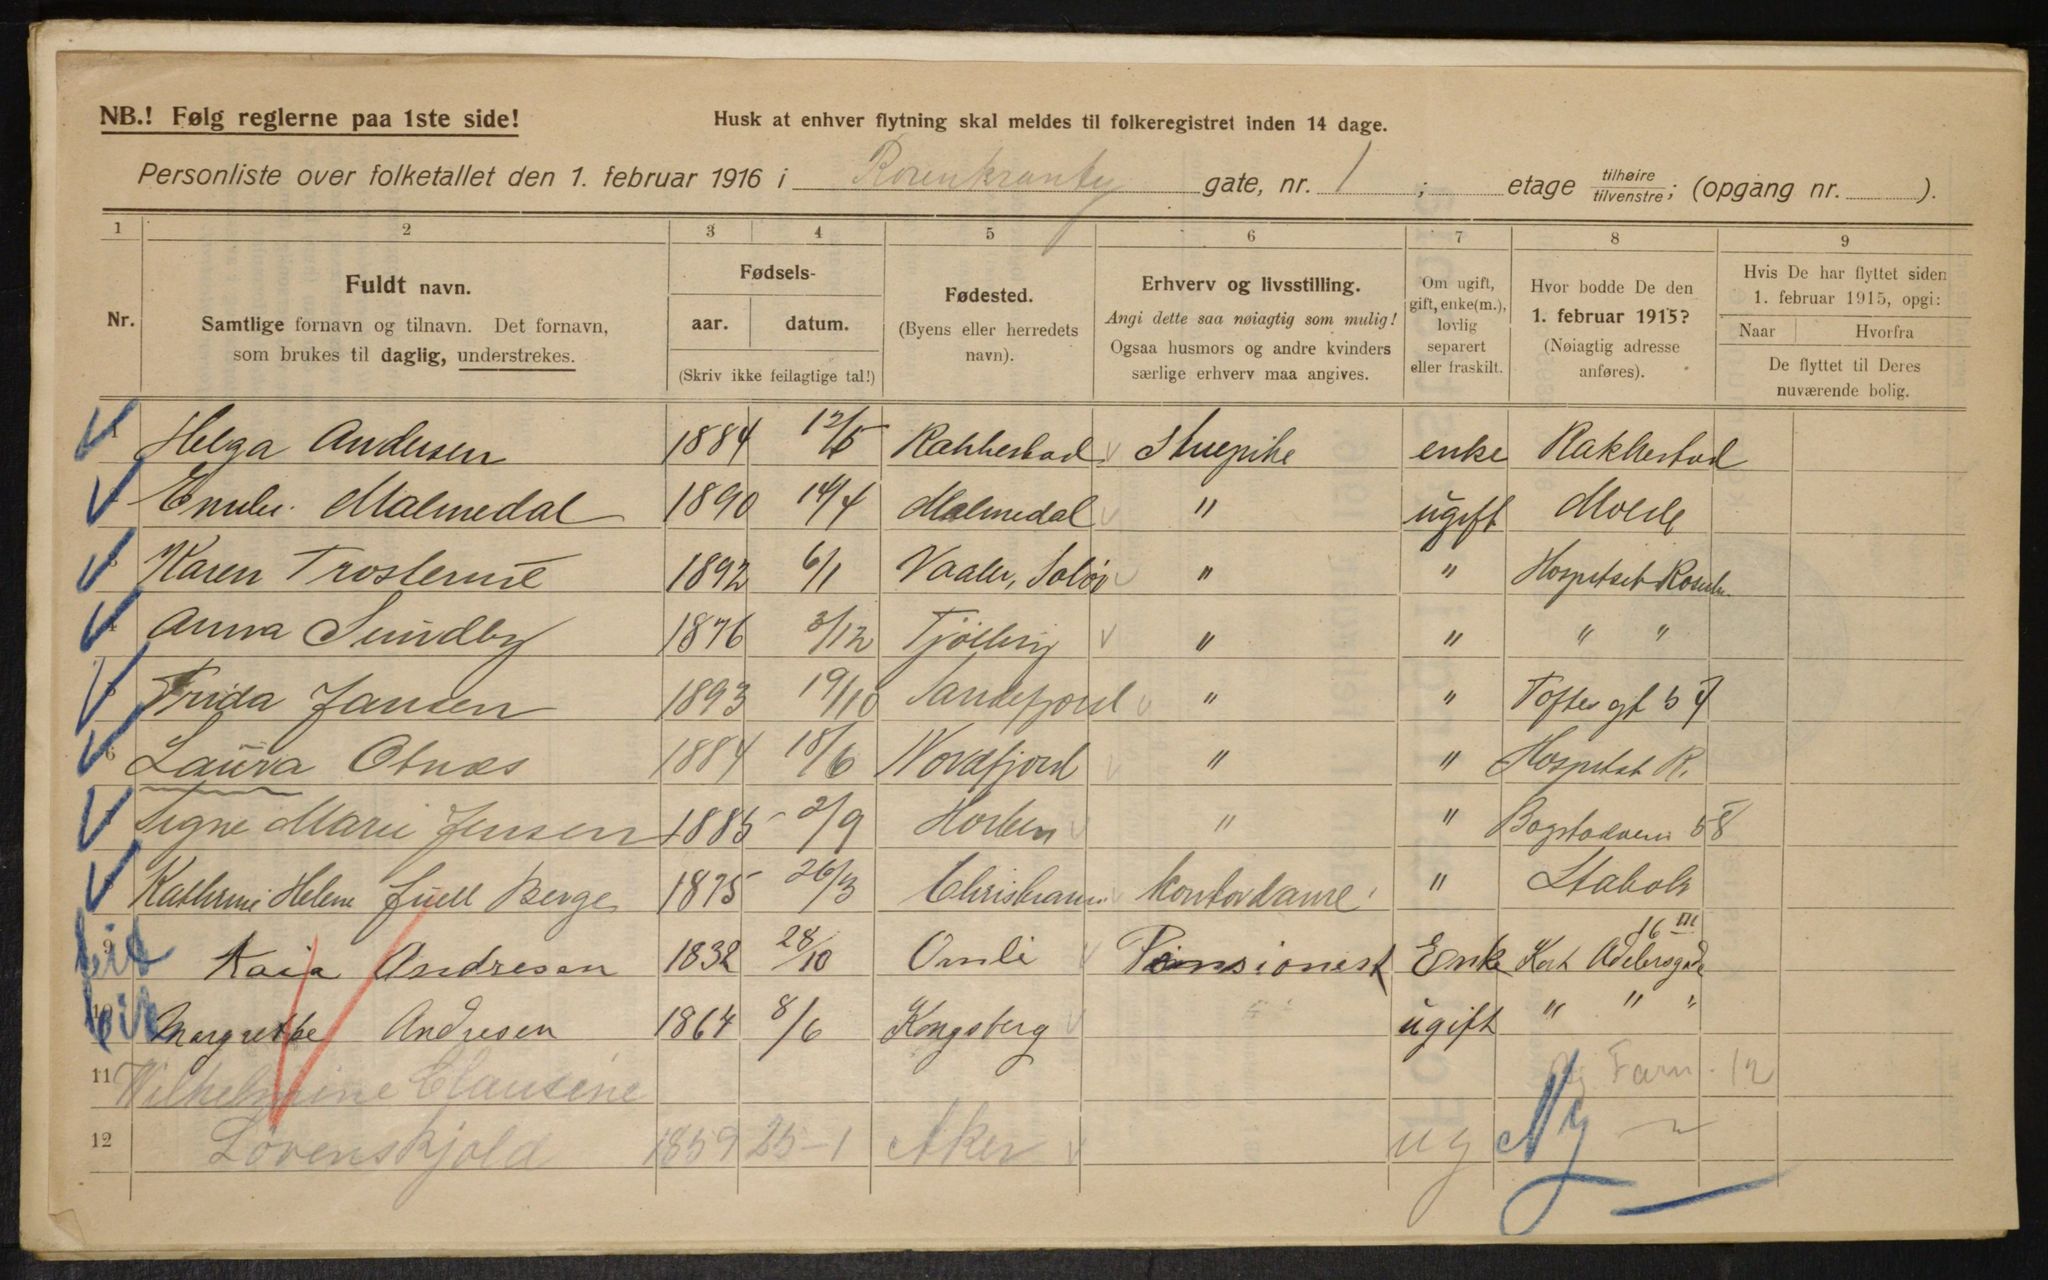 NB.! Følg reglerne paa 1ste side!
Husk at enhver flytning skal meldes til folkeregistret inden 14 dage.
Personliste over folketallet den 1. februar 1916 i Rosenkrantz gate, nr. 1 ; etage tilhøire/tilvenstre; (opgang nr. ).
1 2 3 4 5 6 7 8 9
Nr.
Fuldt navn.
Samtlige fornavn og tilnavn. Det fornavn,
som brukes til daglig, understrekes.
Fødsels-
aar. datum.
(Skriv ikke feilagtige tal!)
Fødested.
(Byens eller herredets
navn).
Erhverv og livsstilling.
Angi dette saa nøiagtig som mulig!
Ogsaa husmors og andre kvinders
særlige erhverv maa angives.
Om ugift,
gift, enke(m.),
lovlig
separert
eller fraskilt.
Hvor bodde De den
1. februar 1915?
(Nøiagtig adresse
anføres).
Hvis De har flyttet siden
1. februar 1915, opgi:
Naar Hvorfra
De flyttet til Deres
nuværende bolig.
1 Helga Andersen 1884 12/5 Rakkestad Stuepike enke Rakkestad
2 Malmedal 1890 14/4 Malmedal " ugift Molde
3 Karen 1892 6/1 Vaaler, Solør " " Hospitset
4 Anna Sundby 1876 3/12 Tjølling " " " "
5 Frida Jansen 1893 19/10 Sandefjord " " Toftes gt 57
6 Laura Otnæs 1884 18/6 Nordfjord " " Hospitset R.
7 Signe Marie Jensen 1885 2/9 Horten " " Bogstadvein 58
8 Kathrine Helene Juell Berge 1875 26/3 Christiania Kontordame " Stabæk
9 Kaia Andresen 1832 28/10 Omli Pensionest Enke Kort Adelersgade 16 III
10 Margrethe Andresen 1864 8/6 Kongsberg ugift " " "
11 Wilhelmine Clausine Farm. 12
12 Løvenskjold 1859 25-1 Aker ug Ny